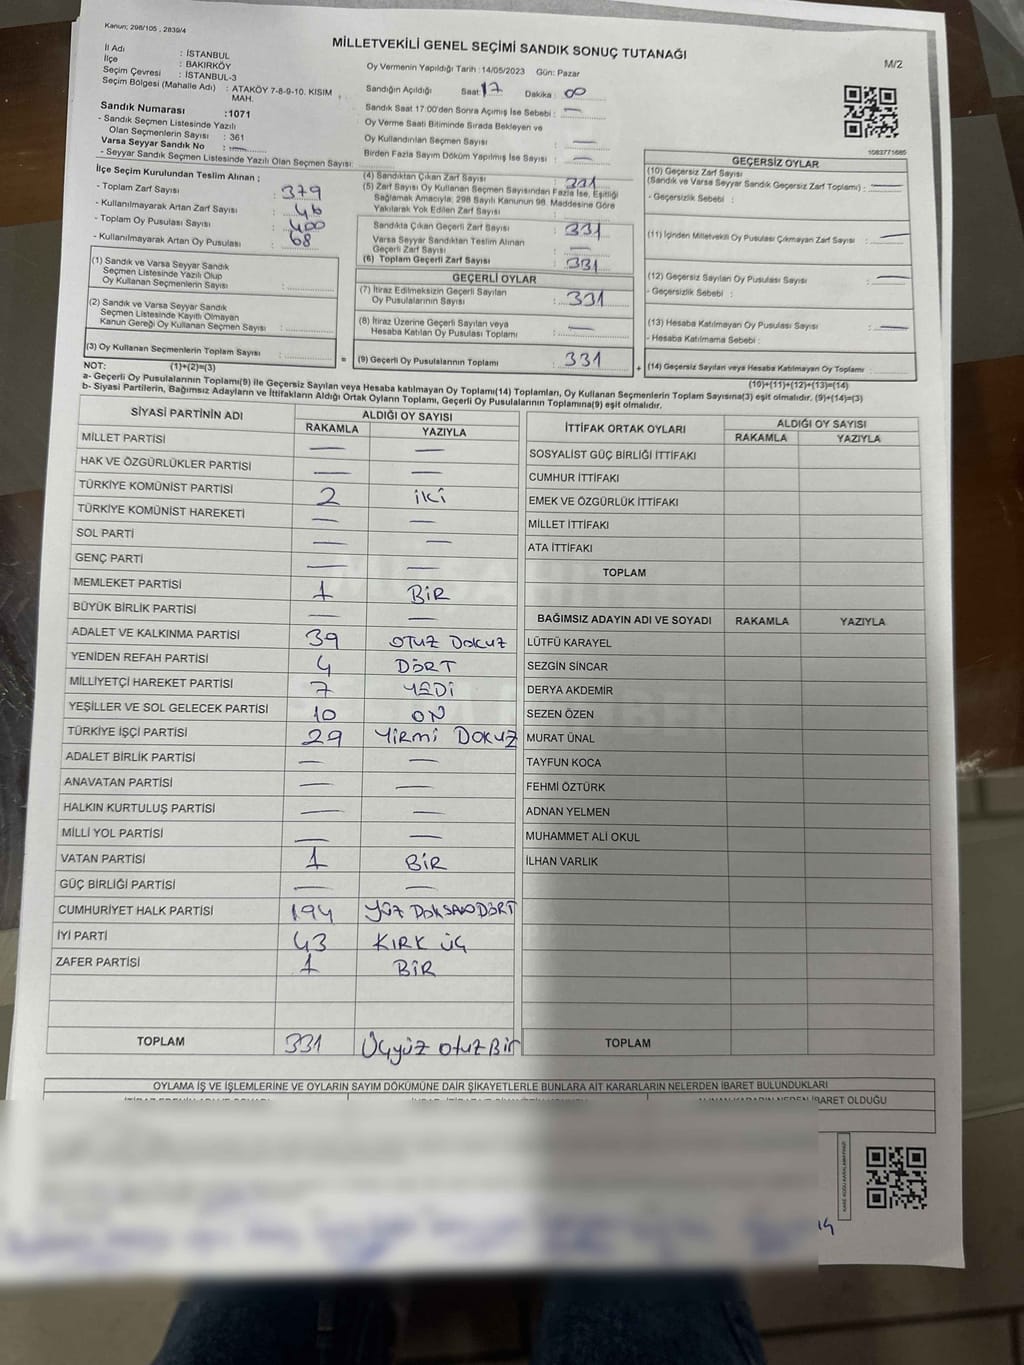 Kanun; 298/105 , 2839/4
MİLLETVEKİLİ GENEL SEÇİMİ SANDIK SONUÇ TUTANAĞI
M/2
İl Adı : İSTANBUL
İlçe : BAKIRKÖY
Seçim Çevresi : İSTANBUL-3
Seçim Bölgesi (Mahalle Adı) : ATAKÖY 7-8-9-10. KISIM MAH.
Sandık Numarası :1071
- Sandık Seçmen Listesinde Yazılı
Olan Seçmenlerin Sayısı : 361
Varsa Seyyar Sandık No : —
- Seyyar Sandık Seçmen Listesinde Yazılı Olan Seçmen Sayısı:
Oy Vermenin Yapıldığı Tarih :14/05/2023 Gün: Pazar
Sandığın Açıldığı Saat: 17 Dakika : 00
Sandık Saat 17:00'den Sonra Açımış İse Sebebi : —
Oy Verme Saati Bitiminde Sırada Bekleyen ve
Oy Kullandırılan Seçmen Sayısı : —
Birden Fazla Sayım Döküm Yapılmış İse Sayısı : —
1083771685
İlçe Seçim Kurulundan Teslim Alınan ;
- Toplam Zarf Sayısı : 379
- Kullanılmayarak Artan Zarf Sayısı : 46
- Toplam Oy Pusulası Sayısı : 400
- Kullanılmayarak Artan Oy Pusulası : 68
(1) Sandık ve Varsa Seyyar Sandık
Seçmen Listesinde Yazılı Olup
Oy Kullanan Seçmenlerin Sayısı :
(2) Sandık ve Varsa Seyyar Sandık
Seçmen Listesinde Kayıtlı Olmayan
Kanun Gereği Oy Kullanan Seçmen Sayısı :
(3) Oy Kullanan Seçmenlerin Toplam Sayısı :
(1)+(2)=(3)
(4) Sandıktan Çıkan Zarf Sayısı : 331
(5) Zarf Sayısı Oy Kullanan Seçmen Sayısından Fazla İse, Eşitliği
Sağlamak Amacıyla, 298 Sayılı Kanunun 98. Maddesine Göre
Yakılarak Yok Edilen Zarf Sayısı :
Sandıkta Çıkan Geçerli Zarf Sayısı : 331
Varsa Seyyar Sandıktan Teslim Alınan
Geçerli Zarf Sayısı : —
(6) Toplam Geçerli Zarf Sayısı : 331
GEÇERLİ OYLAR
(7) İtiraz Edilmeksizin Geçerli Sayılan
Oy Pusulalarının Sayısı : 331
(8) İtiraz Üzerine Geçerli Sayılan veya
Hesaba Katılan Oy Pusulası Toplamı : —
= (9) Geçerli Oy Pusulalarının Toplamı : 331
GEÇERSİZ OYLAR
(10) Geçersiz Zarf Sayısı
(Sandık ve Varsa Seyyar Sandık Geçersiz Zarf Toplamı) : —
- Geçersizlik Sebebi :
(11) İçinden Milletvekili Oy Pusulası Çıkmayan Zarf Sayısı : —
(12) Geçersiz Sayılan Oy Pusulası Sayısı : —
- Geçersizlik Sebebi :
(13) Hesaba Katılmayan Oy Pusulası Sayısı : —
- Hesaba Katılmama Sebebi :
+ (14) Geçersiz Sayılan veya Hesaba Katılmayan Oy Toplamı :
(10)+(11)+(12)+(13)=(14)
NOT:
a- Geçerli Oy Pusulalarının Toplamı(9) ile Geçersiz Sayılan veya Hesaba katılmayan Oy Toplamı(14) Toplamları, Oy Kullanan Seçmenlerin Toplam Sayısına(3) eşit olmalıdır. (9)+(14)=(3)
b- Siyasi Partilerin, Bağımsız Adayların ve İttifakların Aldığı Ortak Oyların Toplamı, Geçerli Oy Pusulalarının Toplamına(9) eşit olmalıdır.
SİYASİ PARTİNİN ADI ALDIĞI OY SAYISI
RAKAMLA YAZIYLA
MİLLET PARTİSİ — —
HAK VE ÖZGÜRLÜKLER PARTİSİ — —
TÜRKİYE KOMÜNİST PARTİSİ 2 iki
TÜRKİYE KOMÜNİST HAREKETİ — —
SOL PARTİ — —
GENÇ PARTİ — —
MEMLEKET PARTİSİ 1 BİR
BÜYÜK BİRLİK PARTİSİ — —
ADALET VE KALKINMA PARTİSİ 39 OTUZ DOKUZ
YENİDEN REFAH PARTİSİ 4 DÖRT
MİLLİYETÇİ HAREKET PARTİSİ 7 YEDİ
YEŞİLLER VE SOL GELECEK PARTİSİ 10 ON
TÜRKİYE İŞÇİ PARTİSİ 29 Yirmi DOKUZ
ADALET BİRLİK PARTİSİ — —
ANAVATAN PARTİSİ — —
HALKIN KURTULUŞ PARTİSİ — —
MİLLİ YOL PARTİSİ — —
VATAN PARTİSİ 1 BİR
GÜÇ BİRLİĞİ PARTİSİ — —
CUMHURİYET HALK PARTİSİ 194 YÜZ DOKSAN DÖRT
İYİ PARTİ 43 KIRK ÜÇ
ZAFER PARTİSİ 1 BİR
TOPLAM 331 Üçyüz otuz Bir
İTTİFAK ORTAK OYLARI ALDIĞI OY SAYISI
RAKAMLA YAZIYLA
SOSYALİST GÜÇ BİRLİĞİ İTTİFAKI
CUMHUR İTTİFAKI
EMEK VE ÖZGÜRLÜK İTTİFAKI
MİLLET İTTİFAKI
ATA İTTİFAKI
TOPLAM
BAĞIMSIZ ADAYIN ADI VE SOYADI RAKAMLA YAZIYLA
LÜTFÜ KARAYEL
SEZGİN SİNCAR
DERYA AKDEMİR
SEZEN ÖZEN
MURAT ÜNAL
TAYFUN KOCA
FEHMİ ÖZTÜRK
ADNAN YELMEN
MUHAMMET ALİ OKUL
İLHAN VARLIK
TOPLAM
OYLAMA İŞ VE İŞLEMLERİNE VE OYLARIN SAYIM DÖKÜMÜNE DAİR ŞİKAYETLERLE BUNLARA AİT KARARLARIN NELERDEN İBARET BULUNDUKLARI
İBARET OLDUĞU